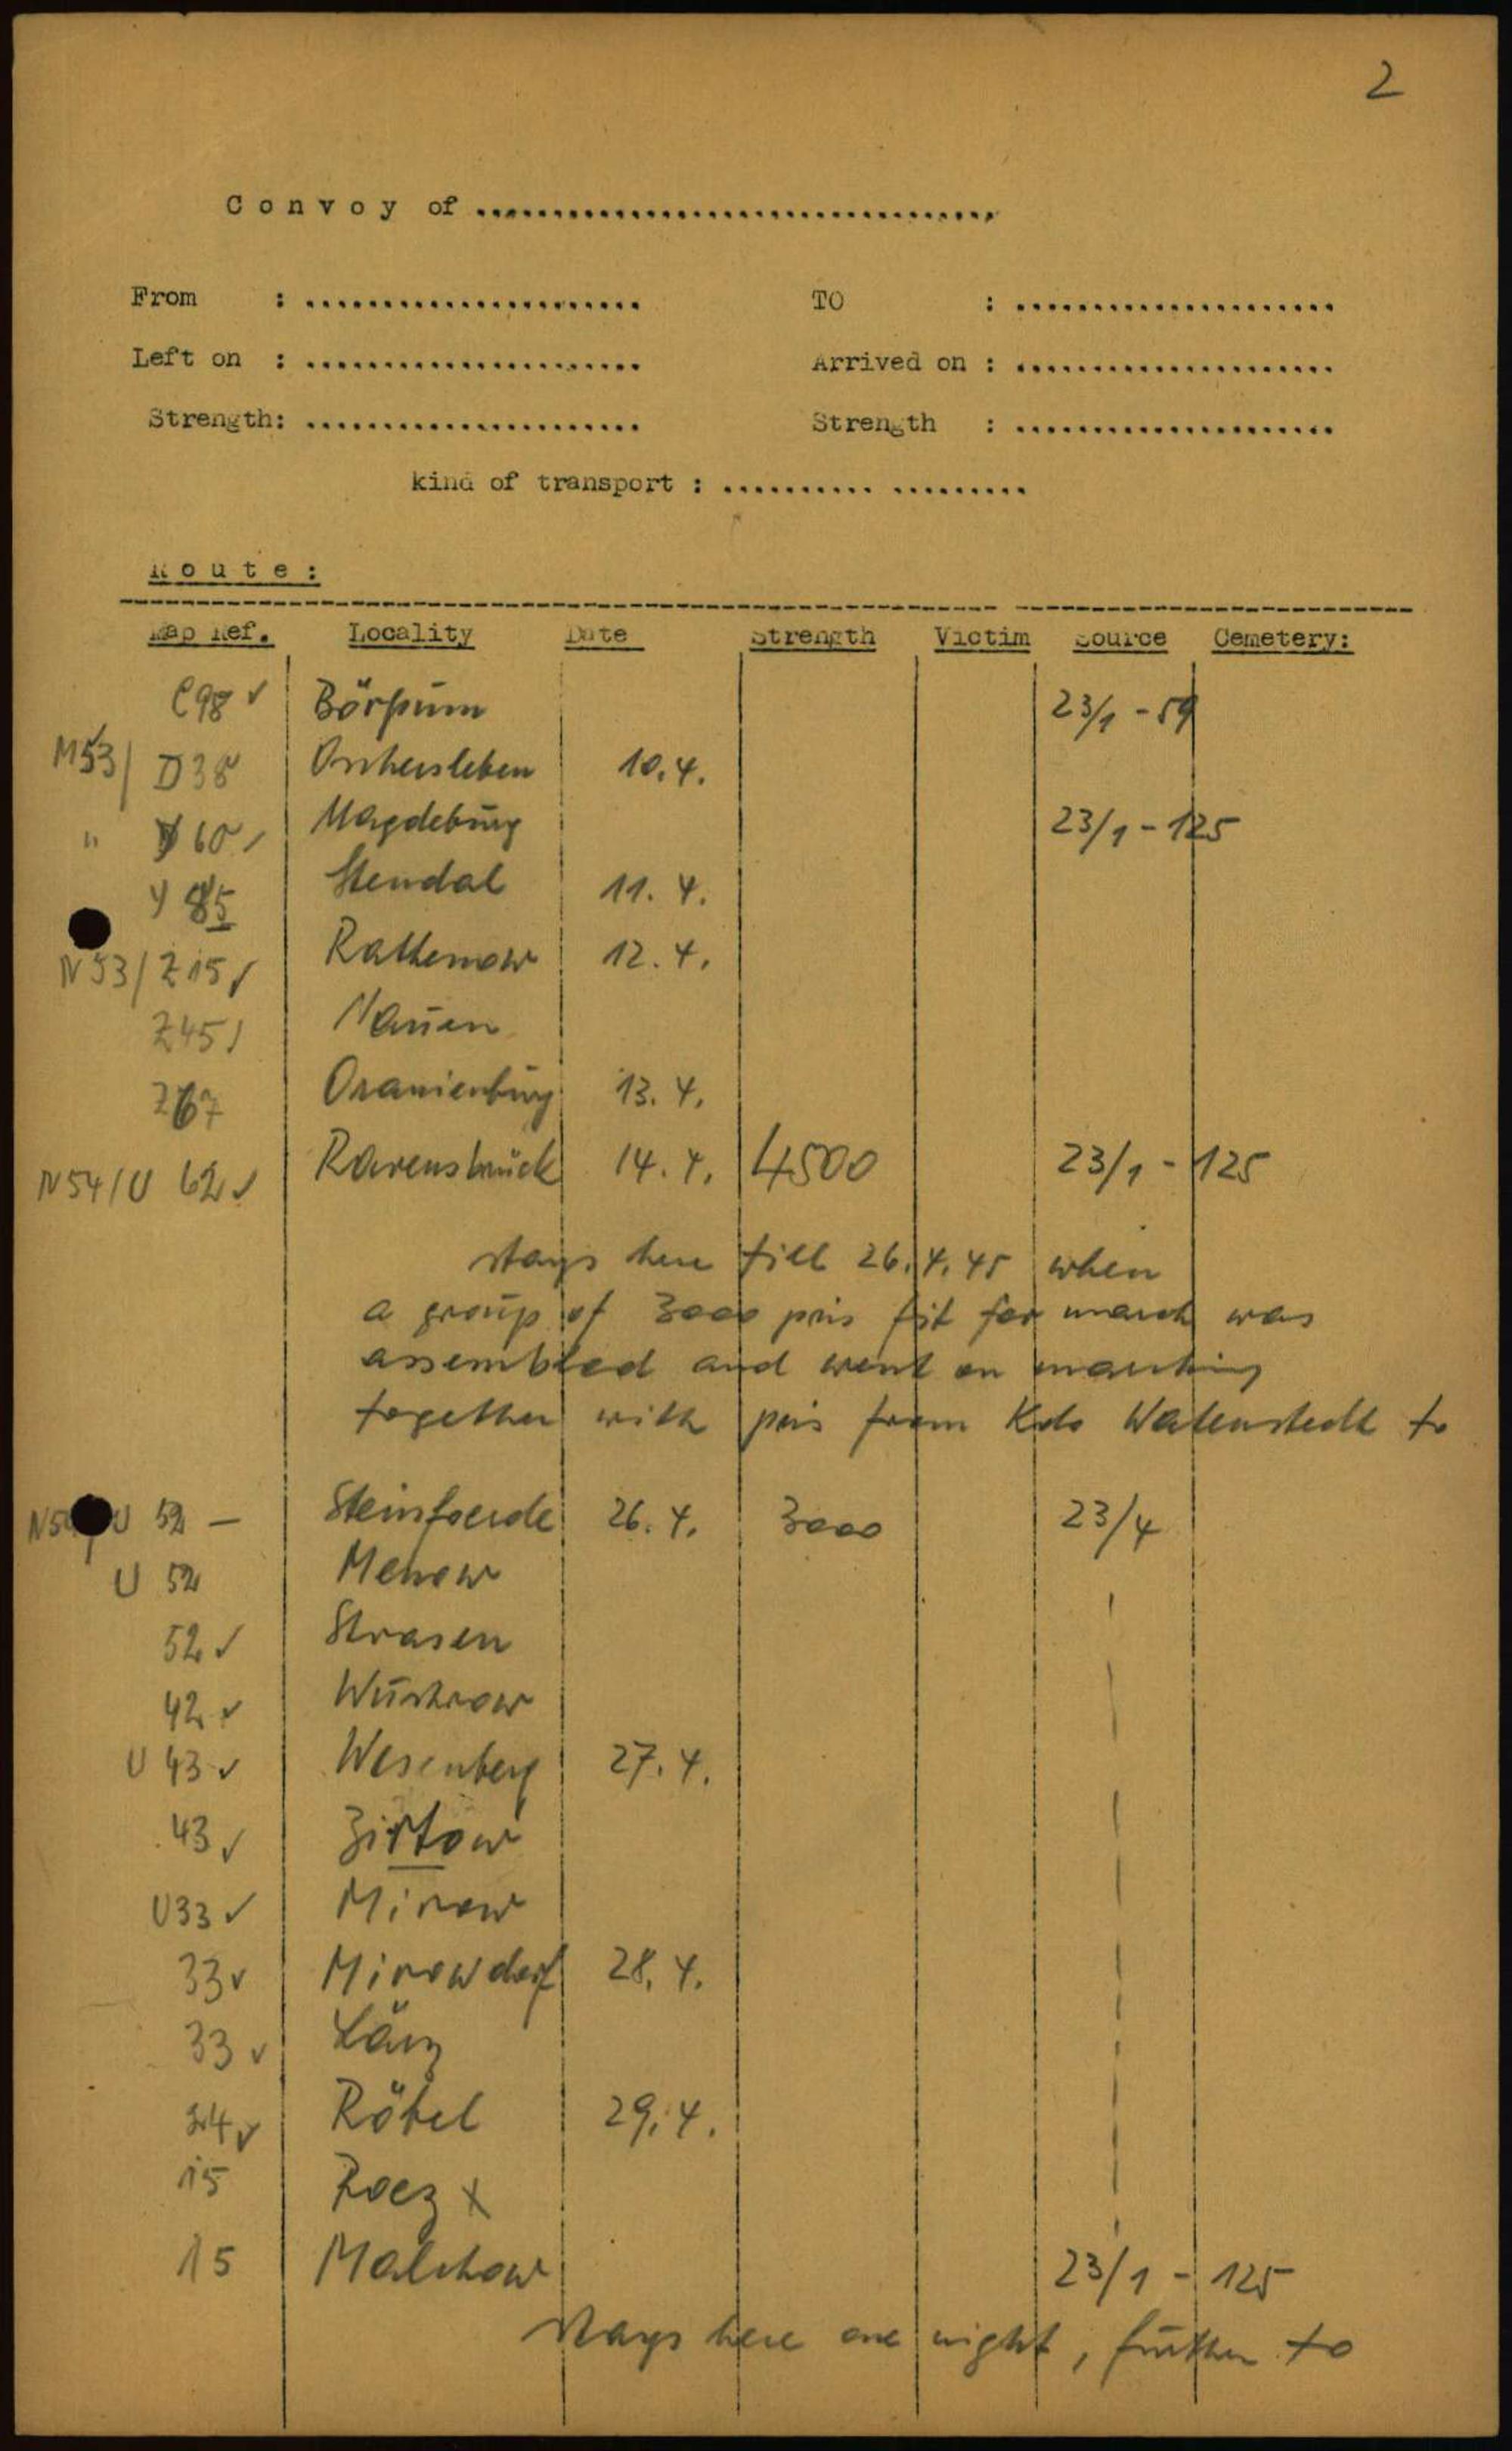 2
Convoy of ..................................
From : ...................... TO : .....................
Left on : ...................... Arrived on : .....................
Strength: ...................... Strength : .....................
kind of transport : .......... .........
Route:
Map Ref. Locality Date Strength Victim Source Cemetery:
C98 ✓ Börßum 23/1 - 59
M53/ D38 Oschersleben 10.4.
" Y 60 ✓ Magdeburg 23/1 - 125
Y 85 Stendal 11. 4.
N53/Z15 ✓ Rathenow 12. 4.
Z45 ✓ Nauen
Z67 Oranienburg 13. 4.
N54/U 62 ✓ Ravensbrück 14. 4. 4500 23/1 - 125
stays here till 26.4.45 when
a group of 3000 pris fit for march was
assembled and went on marching
together with pris from Kdo Watenstedt to
U 52 — Steinfoerde 26. 4. 3000 23/4
U 52 Menow
52 ✓ Strasen
42 ✓ Wustrow
U 43 ✓ Wesenberg 27. 4.
43 ✓ Zirtow
U33 ✓ Mirow
33 ✓ Mirowdorf 28. 4.
33 ✓ Lärz
24 ✓ Röbel 29. 4.
15 Roez x
15 Malchow 23/1 - 125
stays here one night, further to